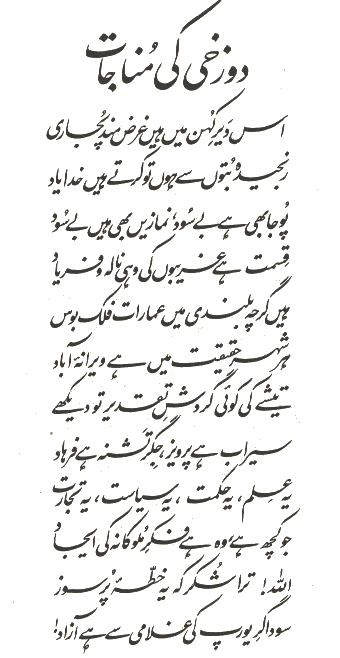 دوزخی کی مُناجات
اس دَیرِ کُہن میں ہیں غرض مند پُجاری
رنجیدہ بُتوں سے ہوں تو کرتے ہیں خدا یاد
پُوجا بھی ہے بے سُود، نمازیں بھی ہیں بے سُود
قِسمت ہے غریبوں کی وہی نالہ و فریاد
ہیں گرچہ بلندی میں عمارات فلک بوس
ہر شہر حقیقت میں ہے ویرانۂ آباد
تیشے کی کوئی گردشِ تقدیر تو دیکھے
سیراب ہے پرویز، جِگر تَشنہ ہے فرہاد
یہ عِلم، یہ حِکمت، یہ سیاست، یہ تجارت
جو کچھ ہے، وہ ہے فکرِ مُلوکانہ کی ایجاد
اللہ! ترا شُکر کہ یہ خطّۂ پُر سوز
سوداگرِ یورپ کی غلامی سے ہے آزاد!